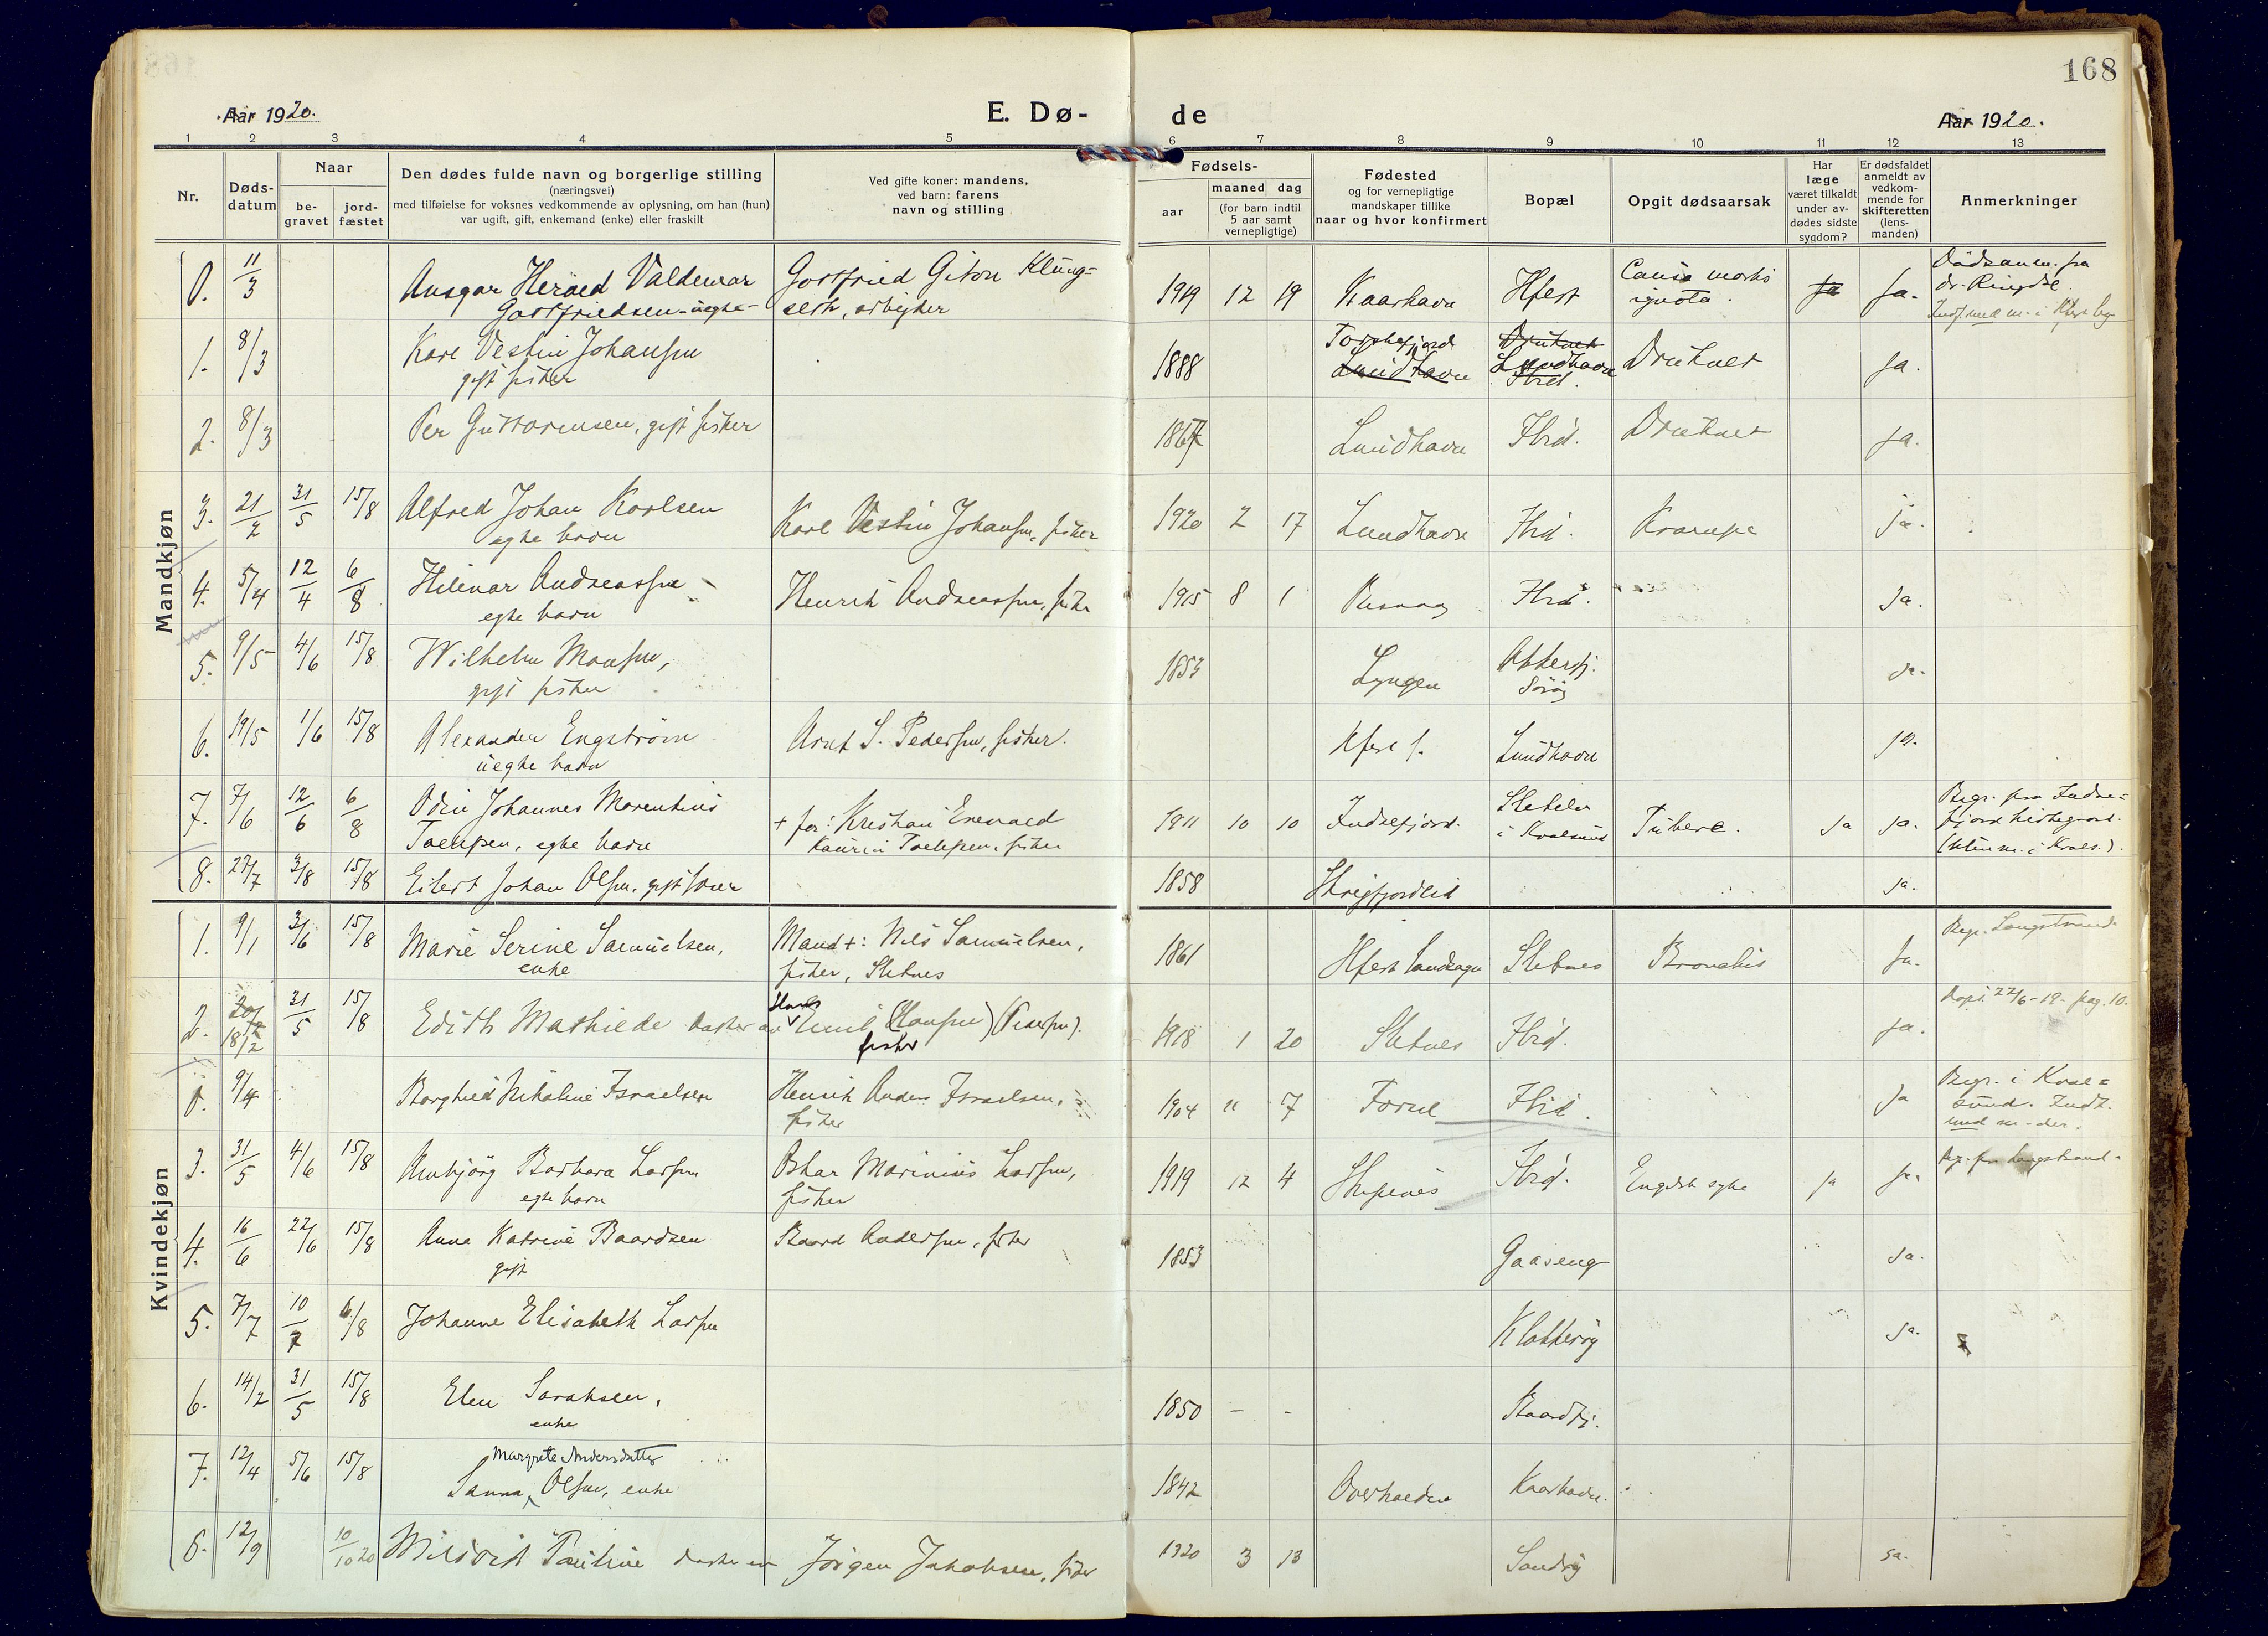 168
Aar 1920.
E. Dø-
de
Aar 1920.
1 2 3 4 5 6 7 8 9 10 11 12 13
Nr.
Døds-
datum
Naar
be-
gravet
jord-
fæstet
Den dødes fulde navn og borgerlige stilling
(næringsvei)
med tilføielse for voksnes vedkommende av oplysning, om han (hun)
var ugift, gift, enkemand (enke) eller fraskilt
Ved gifte koner: mandens,
ved barn: farens
navn og stilling
Fødsels-
aar
maaned dag
(for barn indtil
5 aar samt
vernepligtige)
Fødested
og for vernepligtige
mandskaper tillike
naar og hvor konfirmert
Bopæl
Opgit dødsaarsak
Har
læge
været tilkaldt
under av-
dødes sidste
sygdom?
Er dødsfaldet
anmeldt av
vedkom-
mende for
skifteretten
(lens-
manden)
Anmerkninger
Mandkjøn
0. 11/3 Ansgar Valdemar Gottfried Giton Klung- 1919 12 19 Kaarhavn Hfest ja ja. Dødsanm. fra
Gottfriedsen - uegte - seth, arbeider ignota.
1. 8/3 Karl Vestin Johansen 1888 Lundhavn Lundhavn Druknet ja.
gift fisker
2. 8/3 Per Guttormsen, gift fisker Lundhavn Ibid. Druknet ja.
3. 21/2 31/5 15/8 Alfred Johan Karlsen Karl Vestin Johansen, fisker 1920 2 17 Lundhavn Ibid. Krampe ja.
egte barn
4. 5/4 12/4 6/8 Hilmar Andreassen Henrik Andreassen, fisker 1915 8 1 Ibid. ja.
egte barn
5. 9/5 4/6 15/8 Wilhelm Monsen, 1853 Lyngen Akkerfj. ja.
gift fisker Sørøy
6. 19/5 1/6 15/8 Alexander Engstrøm Arnt S. Pedersen, fisker. Hfest Lundhavn ja.
uegte barn
7. 7/6 12/6 6/8 Odin Johannes Marentius + far: Kristian 1911 10 10 Indrefjord. Tuberc. ja ja. Begr. paa Indre-
egte barn fisker i Kvalsund fjord
8. 27/7 3/8 15/8 Eilert Johan Olsen, gift 1858 ja.
Kvindekjøn
1. 9/1 3/6 15/8 Marie Serine Samuelsen, Mand +: Nils Samuelsen, 1861 Hfest landsogn Sletnes Bronchit ja. Begr. Langstrand.
enke fisker, Sletnes
2. 18/2 31/5 15/8 Edith Mathilde datter av Emil (Hansen) (Pedersen). 1918 1 20 Sletnes Ibid. ja. Døpt 22/6-19- pag. 10.
fisker
0. 9/4 Borghild Nikoline Israelsen Henrik Anders Israelsen, 1904 11 7 Ibid. ja Begr. i Kval-
fisker sund. Indf.
3. 31/5 4/6 15/8 Ambjørg Barbara Larsen Oskar Marinius Larsen, 1919 12 4 Ibid. Engelsk syke ja ja.
egte barn fisker
4. 16/6 22/6 15/8 Anna Katrine Baardsen Baard Andersen, fisker 1853 Gaaseng ja.
gift
5. 7/7 10/7 6/8 Johanne Elisabeth Larsen Klokkerøy ja.
6. 14/2 31/5 15/8 Elen Saraksen, 1850 - - Baardfj.
enke
Margrete Andersdatter
7. 12/4 5/6 15/8 Sanna Olsen, enke 1842 Overhalden Kaarhavn.
8. 12/9 10/10 20 Pauline datter av Jørgen Jakobsen, fisker 1920 3 13 Sandøy ja.